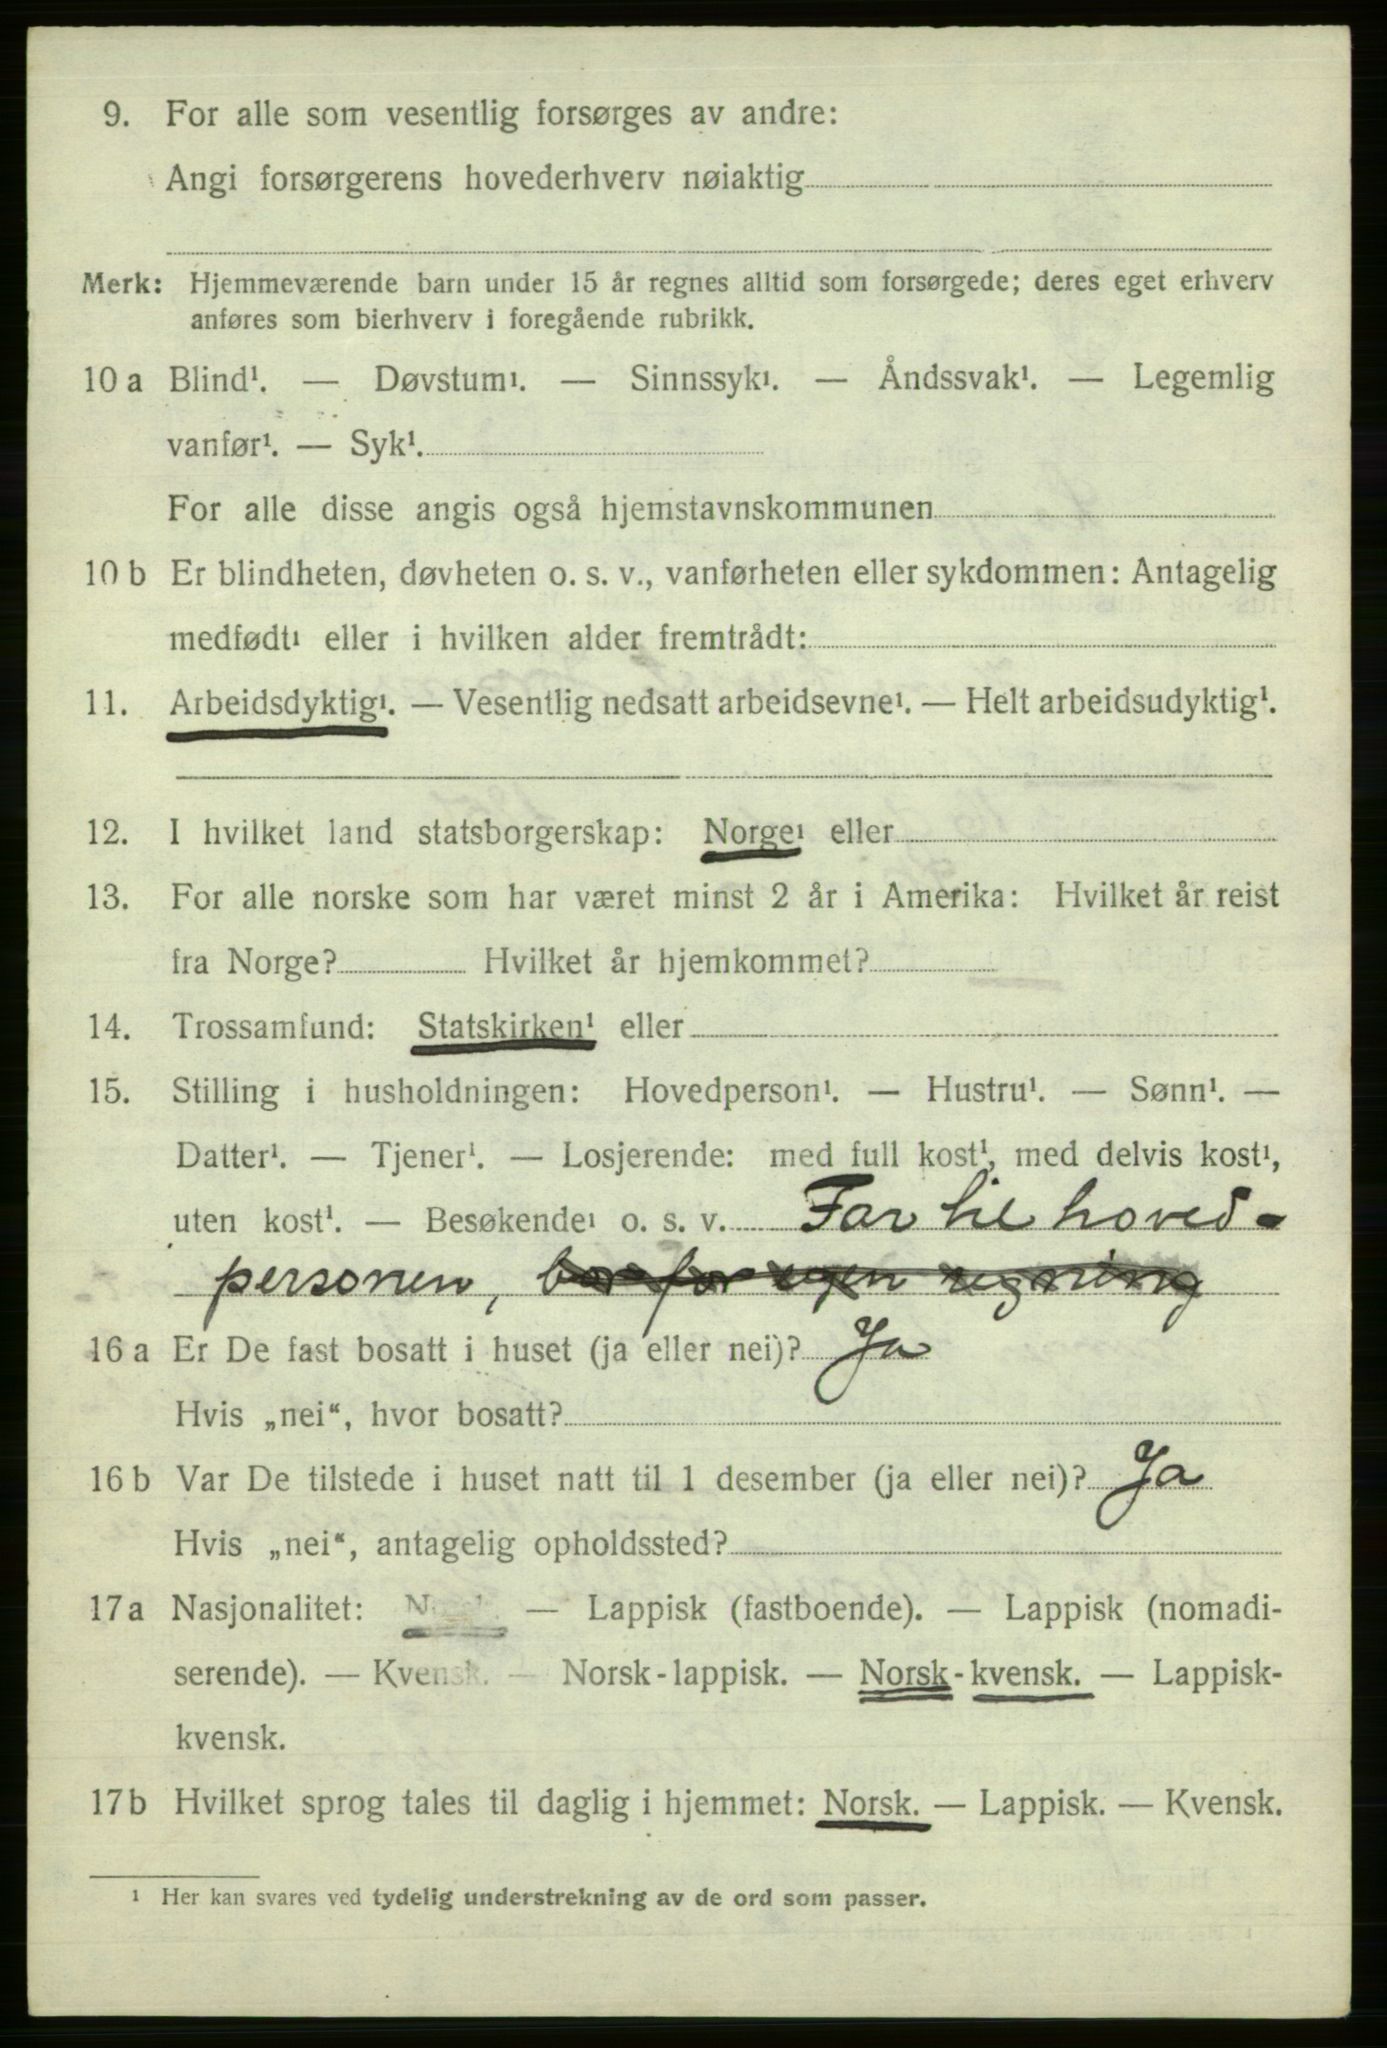 9. For alle som vesentlig forsørges av andre:
Angi forsørgerens hovederhverv nøiaktig
Merk: Hjemmeværende barn under 15 år regnes alltid som forsørgede; deres eget erhverv
anføres som bierhverv i foregående rubrikk.
10 a Blind¹. — Døvstum¹. — Sinnssyk¹. — Åndssvak¹. — Legemlig
vanfør¹. — Syk¹.
For alle disse angis også hjemstavnskommunen
10 b Er blindheten, døvheten o. s. v., vanførheten eller sykdommen: Antagelig
medfødt¹ eller i hvilken alder fremtrådt:
11. Arbeidsdyktig¹. — Vesentlig nedsatt arbeidsevne¹. — Helt arbeidsudyktig¹.
12. I hvilket land statsborgerskap: Norge¹ eller
13. For alle norske som har været minst 2 år i Amerika: Hvilket år reist
fra Norge? Hvilket år hjemkommet?
14. Trossamfund: Statskirken¹ eller
15. Stilling i husholdningen: Hovedperson¹. — Hustru¹. — Sønn¹. —
Datter¹. — Tjener¹. — Losjerende: med full kost¹, med delvis kost¹,
uten kost¹. — Besøkende¹ o. s. v. Far til hoved-
personen, bor for egen regning
16 a Er De fast bosatt i huset (ja eller nei)? Ja
Hvis „nei“, hvor bosatt?
16 b Var De tilstede i huset natt til 1 desember (ja eller nei)? Ja
Hvis „nei“, antagelig opholdssted?
17 a Nasjonalitet: Norsk. — Lappisk (fastboende). — Lappisk (nomadi-
serende). — Kvensk. — Norsk-lappisk. — Norsk-kvensk. — Lappisk-
kvensk.
17 b Hvilket sprog tales til daglig i hjemmet: Norsk. — Lappisk. — Kvensk.
¹ Her kan svares ved tydelig understrekning av de ord som passer.